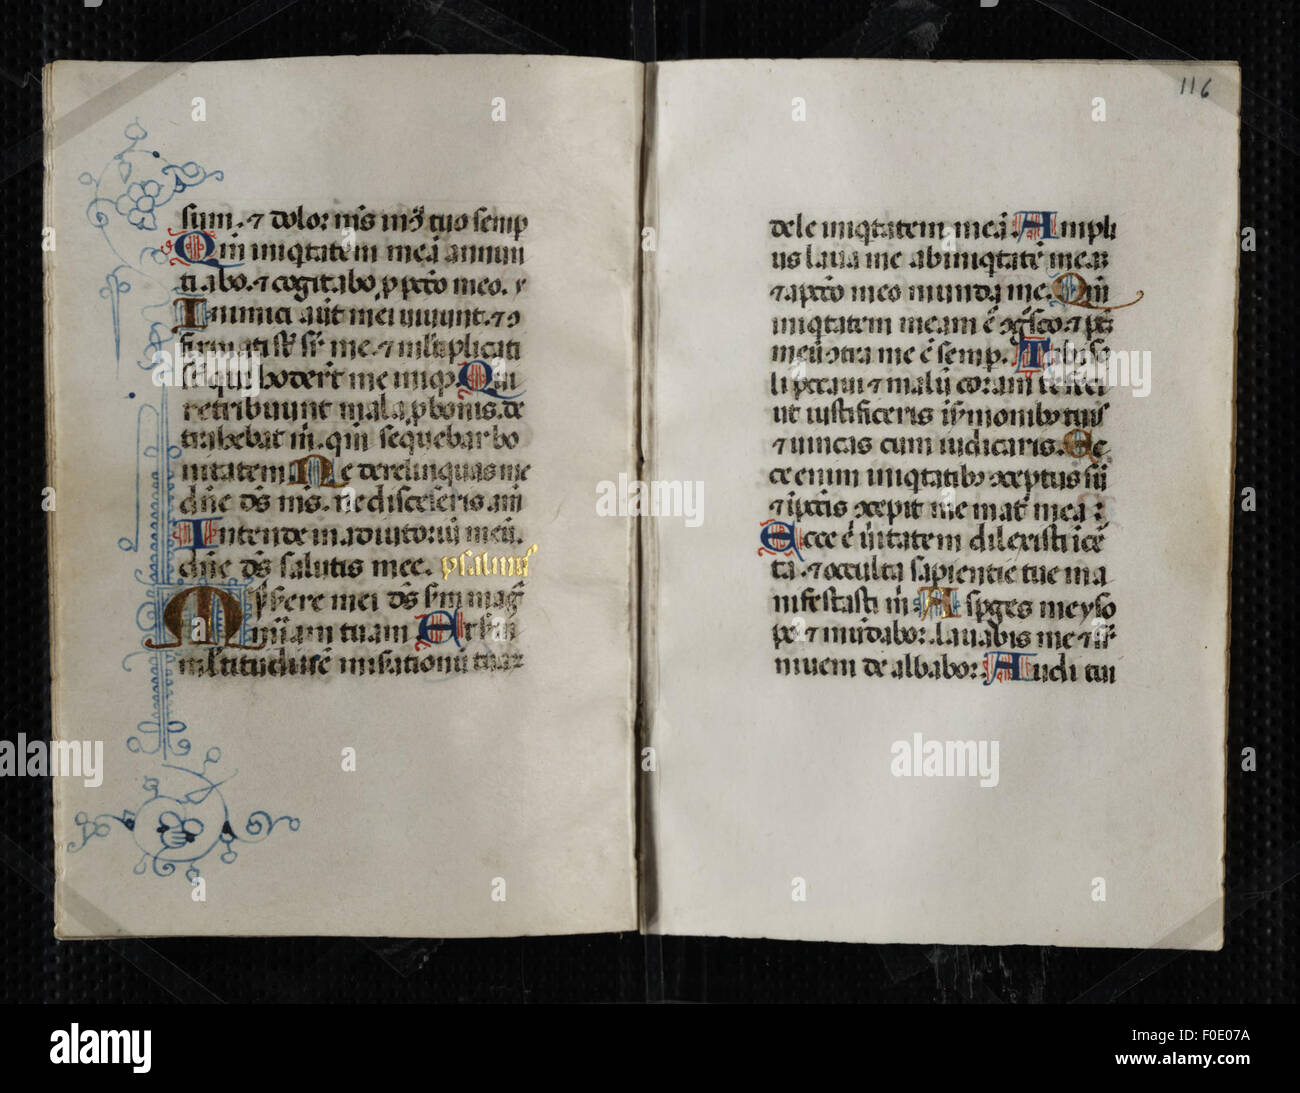 sum. ⁊ dolor m̄s mō tuo semp
Qm̄ iniqtatem meā annun
tiabo. ⁊ cogitabo ꝓ pctō meo.
Inimici aūt mei uiuunt. ⁊ ↄ
firmati sūt sr̄ me. ⁊ ml̄tiplicati
sūt qui hoderūt me iniq. Qui
retribuunt mala ꝓ bonis. de
trahebat m̄. qm̄ sequebar bo
nitatem Ne derelinquas me
dn̄e ds̄ ms̄. ne discesseris a m̄
Intende in adiutoriū meū.
dn̄e ds̄ salutis mee. psalmus
Miserere mei ds̄ sm̄ mag
nā miam tuam Et sm̄
ml̄titudinē miserationū tuaꝝ
116
dele iniqtatem meā. Ampli
us laua me ab iniqtatē mea:
⁊ a pctō meo munda me. Qm̄
iniqtatem meam ē ↄgsco. ⁊ pctm
meū ↄtra me ē semp. Tibi so
li peccaui ⁊ malū coram te feci
ut iustificeris i smonibꝰ tuis
⁊ uincas cum iudicaris. Ec
ce enim iniqtatibꝰ ↄceptus sū
⁊ i pctis ↄcepit me mat̄ mea:
Ecce ē ūitatem dilexisti icē
ta. ⁊ occulta sapientie tue ma
nifestasti m̄. Aspges me yso
po ⁊ mūdabor. lauabis me ⁊ sr̄
niuem de albabor: Audi tui
alamy
alamy stock photo
F0E07A
www.alamy.com